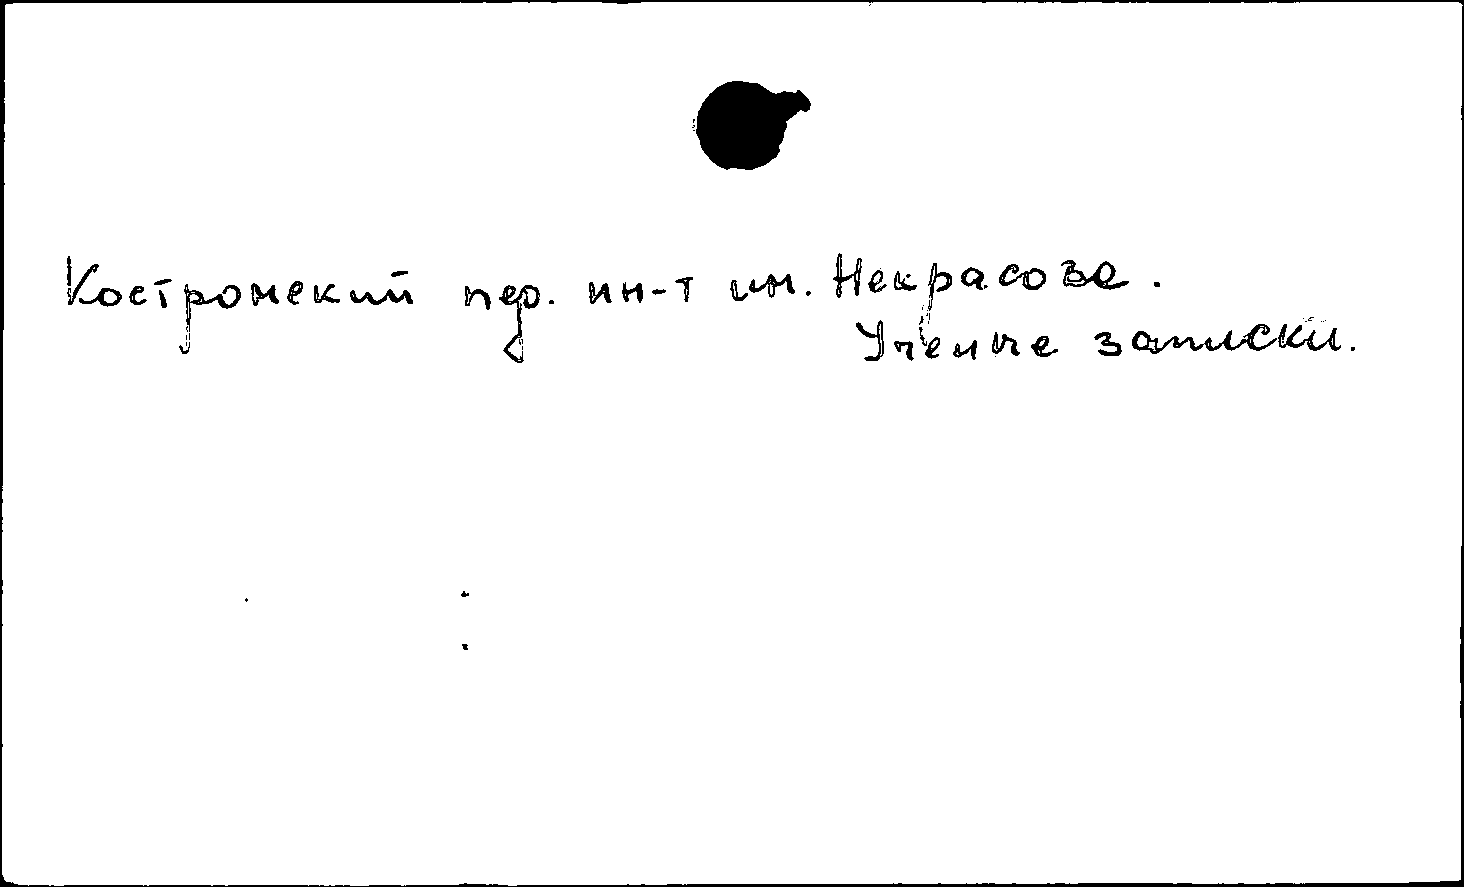 Костромский пед. ин-т им. Некрасова.
Ученые записки.